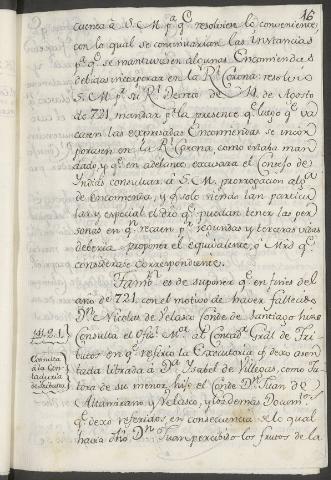 16
cuenta à S. M. pª q̃ resolviese lo conveniente,
con lo qual se continuarian las instancias
pª q̃ se mantuviesen algunas Encomiendas
debidas incorporar en la Rˡ Corona: resolvio
S. M. pʳ su Rˡ Decreto de 14 de Agosto
de 721 mandar pʳ la presente q̃ luego q̃ va
caren las expresadas Encomiendas se incor
porasen en la Rˡ Corona, como estaba man
dado, y q̃ en adelante, excusara el Consejo de
Indias consultar à S. M. prorrogacion algª
de Encomienda, y q̃ solo siendo tan particu
lar y especial el dro q̃ puedan tener las per
sonas en q̃ recaen pʳ segundas y terceras vidas
deberia proponer el equivalente, ò Mrd q̃
considerase correspondiente.
Tambⁿ es de suponer q̃ en fines del
año de 721, con el motivo de haver fallecido
Dⁿ Nicolas de Velasco Conde de Santiago hizo
1721.
Consulta el Ofiˡ Mʳ al Contadʳ Gral de Tri
Consulta
à la Con
taduria
de tributos
butos en q̃ referia la Executoria q̃ dexo asen
tada librada à Dª Isabel de Villegas, como Tu
tora de su menor hijo el Conde Dⁿ Juan de
Altamirano y Velasco, y los demas Docum.ᵗᵒˢ
q̃ dexo referidos, en consecuencia de lo qual
havia dho Dⁿ Juan percibido los frutos de la